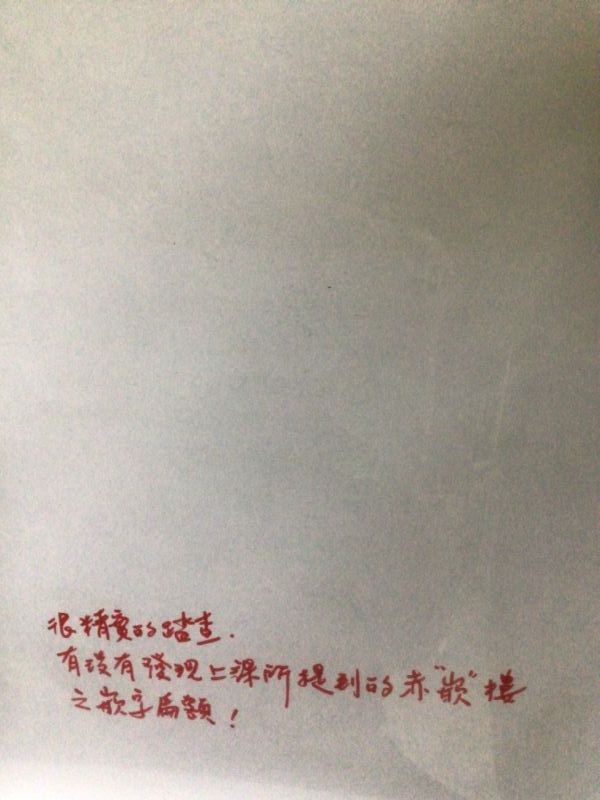 很精實的踏查.
有沒有發現上課所提到的赤"嵌"樓
之嵌字匾額!